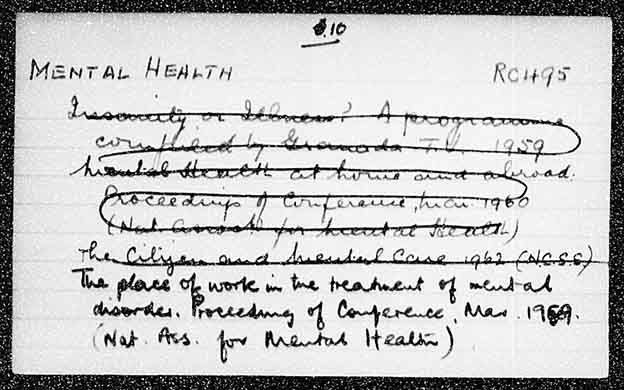 8.10
MENTAL HEALTH RC495
Insanity or Illness? A programme
compiled by Granada T.V. 1959
Mental Health at home and abroad.
Proceedings of Conference, Mar. 1960
(Nat. Assoc. for Mental Health)
The Citizen and Mental Care 1962 (N.C.S.S.)
The place of work in the treatment of mental
disorder. Proceedings of Conference, Mar. 1959.
(Nat. Ass. for Mental Health)